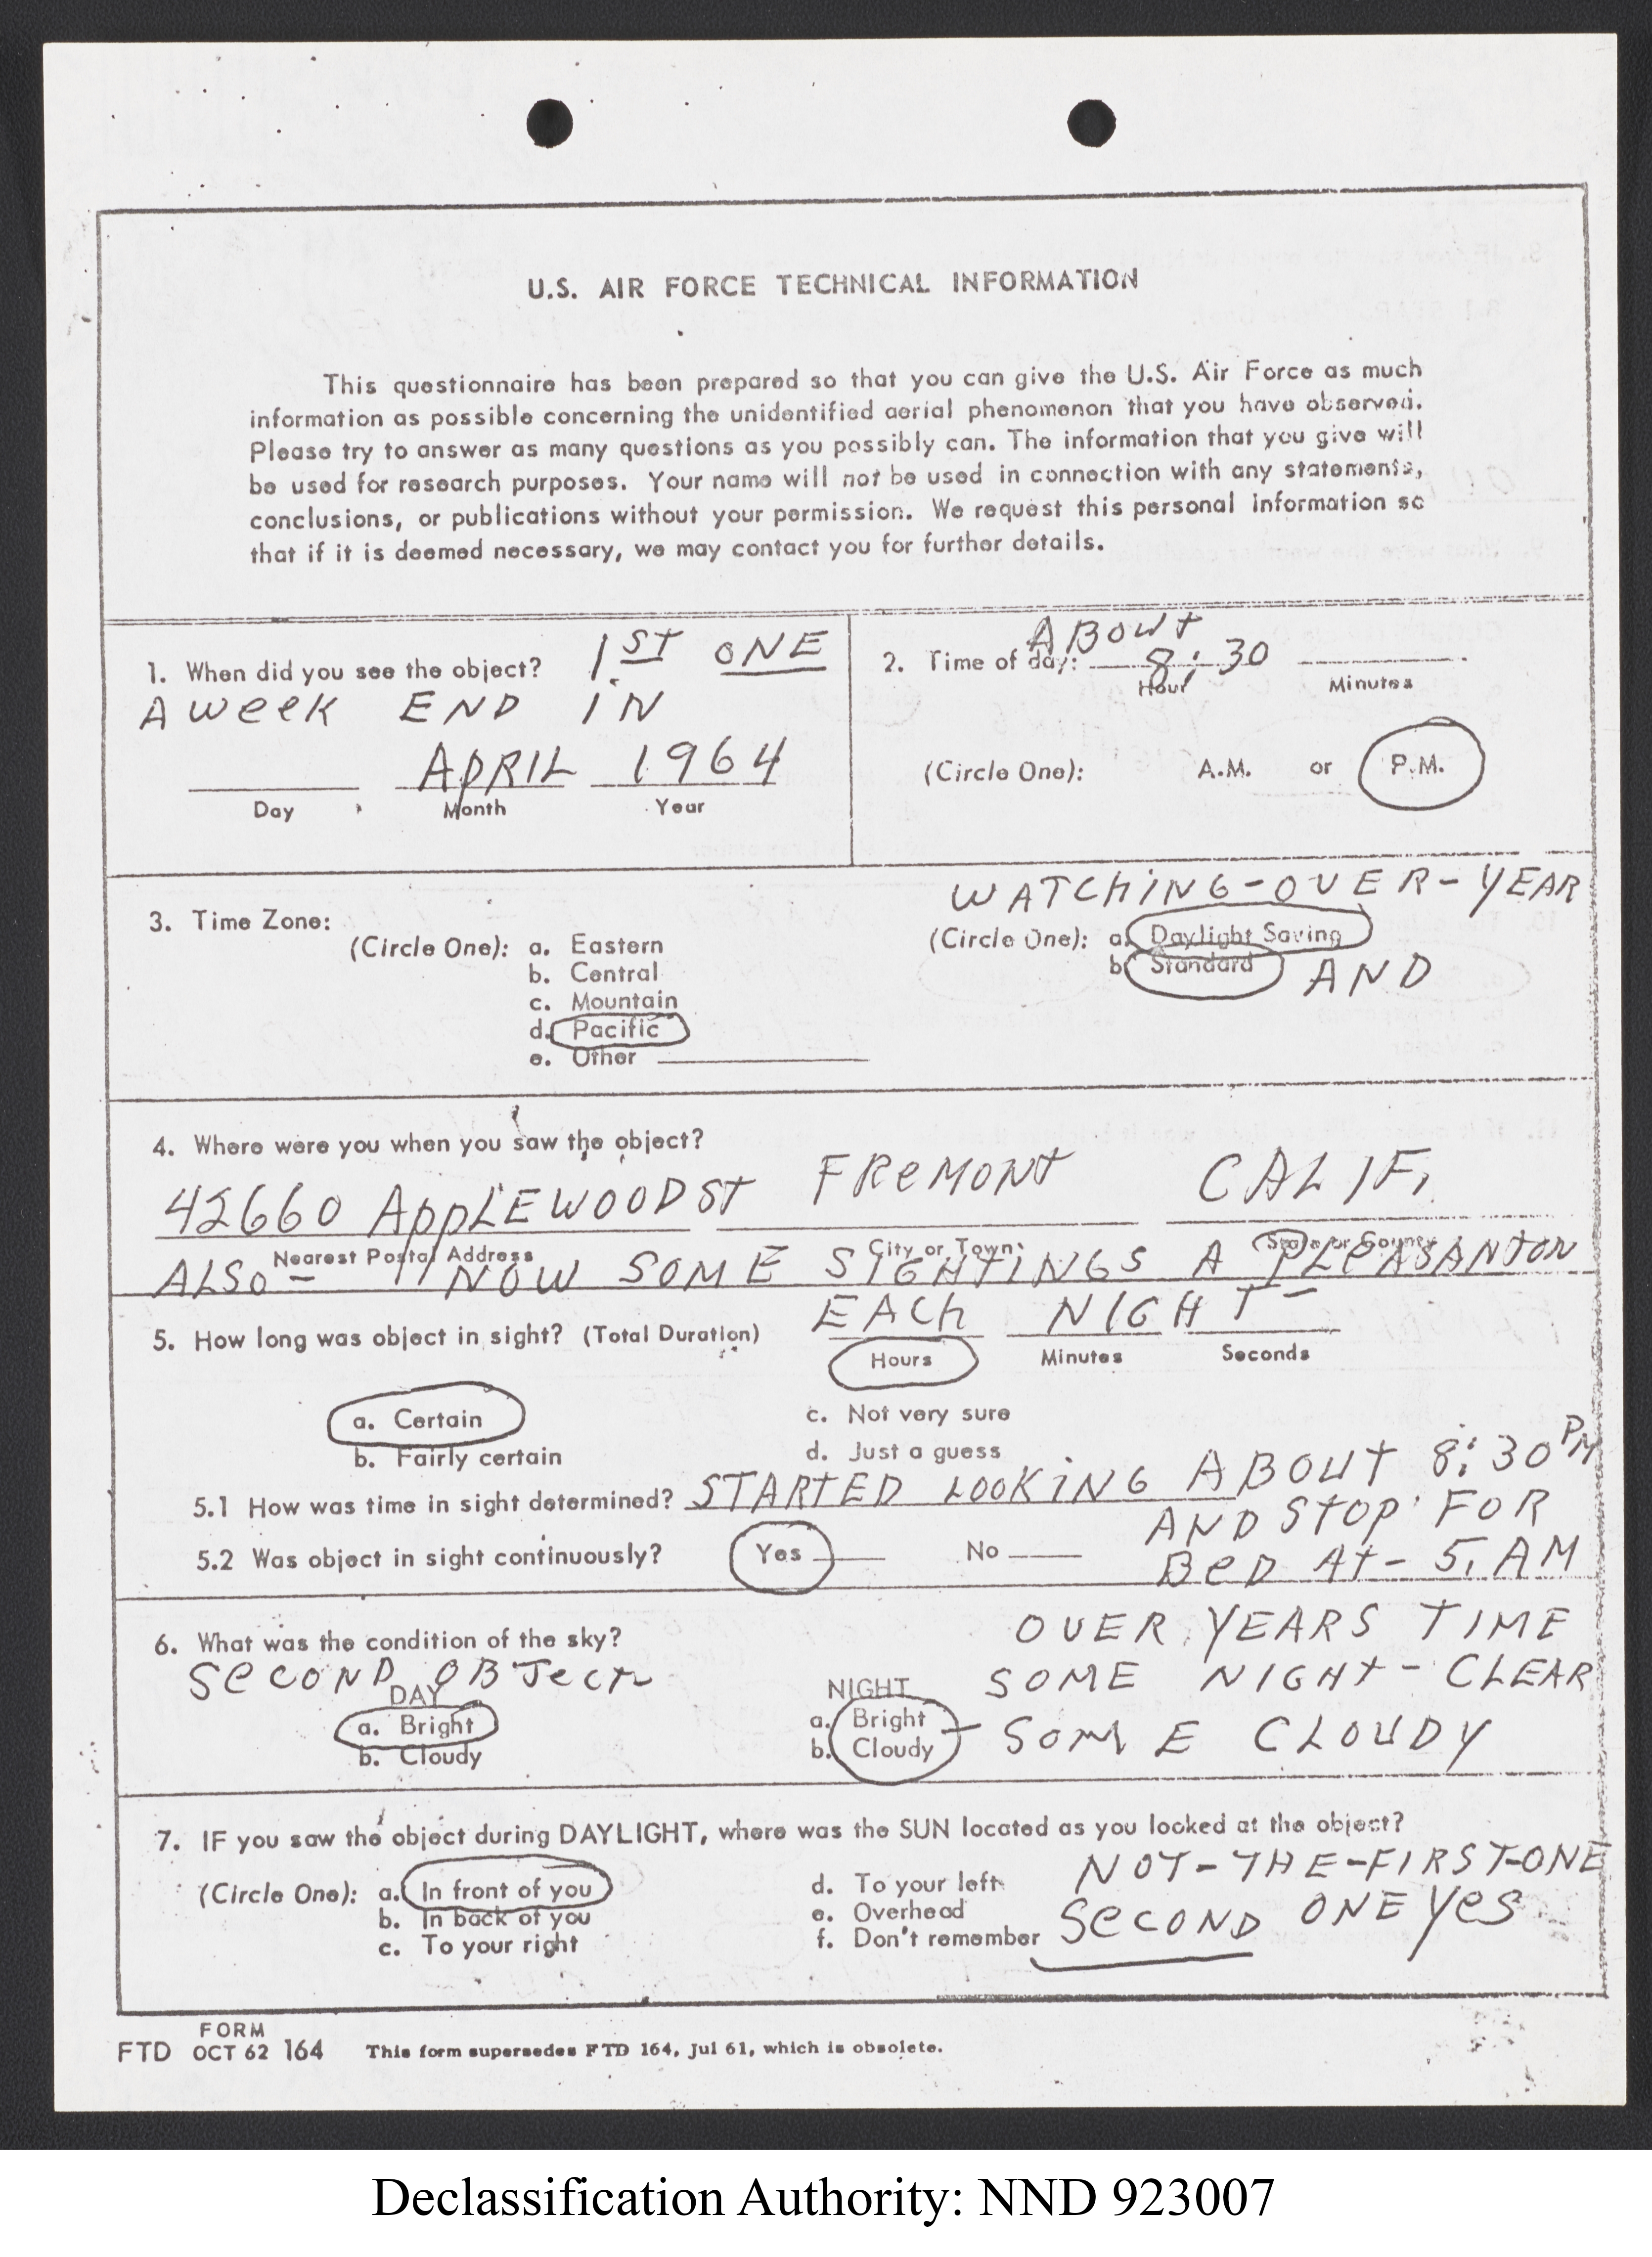 U.S. AIR FORCE TECHNICAL INFORMATION
This questionnaire has been prepared so that you can give the U.S. Air Force as much
information as possible concerning the unidentified aerial phenomenon that you have observed.
Please try to answer as many questions as you possibly can. The information that you give will
be used for research purposes. Your name will not be used in connection with any statements,
conclusions, or publications without your permission. We request this personal information so
that if it is deemed necessary, we may contact you for further details.
1. When did you see the object? 1.ST ONE
A WeeK END IN
APRIL 1964
Day Month Year
ABOUT
2. Time of day: 8:30
Hour Minutes
(Circle One): A.M. or P.M.
3. Time Zone:
(Circle One): a. Eastern
b. Central
c. Mountain
d. Pacific
e. Other
WATCHING-OVER-YEAR
(Circle One): a. Daylight Saving
b. Standard AND
4. Where were you when you saw the object?
42660 AppLEWOOD ST FReMONT CALIF.
Nearest Postal Address City or Town State or County
ALSO - NOW SOME SIGHTINGS A PLeASANTON
EACh NIGHT -
5. How long was object in sight? (Total Duration)
Hours Minutes Seconds
a. Certain c. Not very sure
b. Fairly certain d. Just a guess
5.1 How was time in sight determined? STARTED LOOKING ABOUT 8:30 PM
AND STOP FOR
5.2 Was object in sight continuously? Yes No BeD At - 5. AM
6. What was the condition of the sky? OVER YEARS TIME
SeCOND OBJeCT SOME NIGHT - CLEAR
DAY NIGHT
a. Bright a. Bright - SOME CLOUDY
b. Cloudy b. Cloudy
7. IF you saw the object during DAYLIGHT, where was the SUN located as you looked at the object?
NOT-THE-FIRST-ONE
(Circle One): a. In front of you d. To your left
b. In back of you e. Overhead SeCOND ONE YeS
c. To your right f. Don't remember
FORM
FTD OCT 62 164 This form supersedes FTD 164, Jul 61, which is obsolete.
Declassification Authority: NND 923007